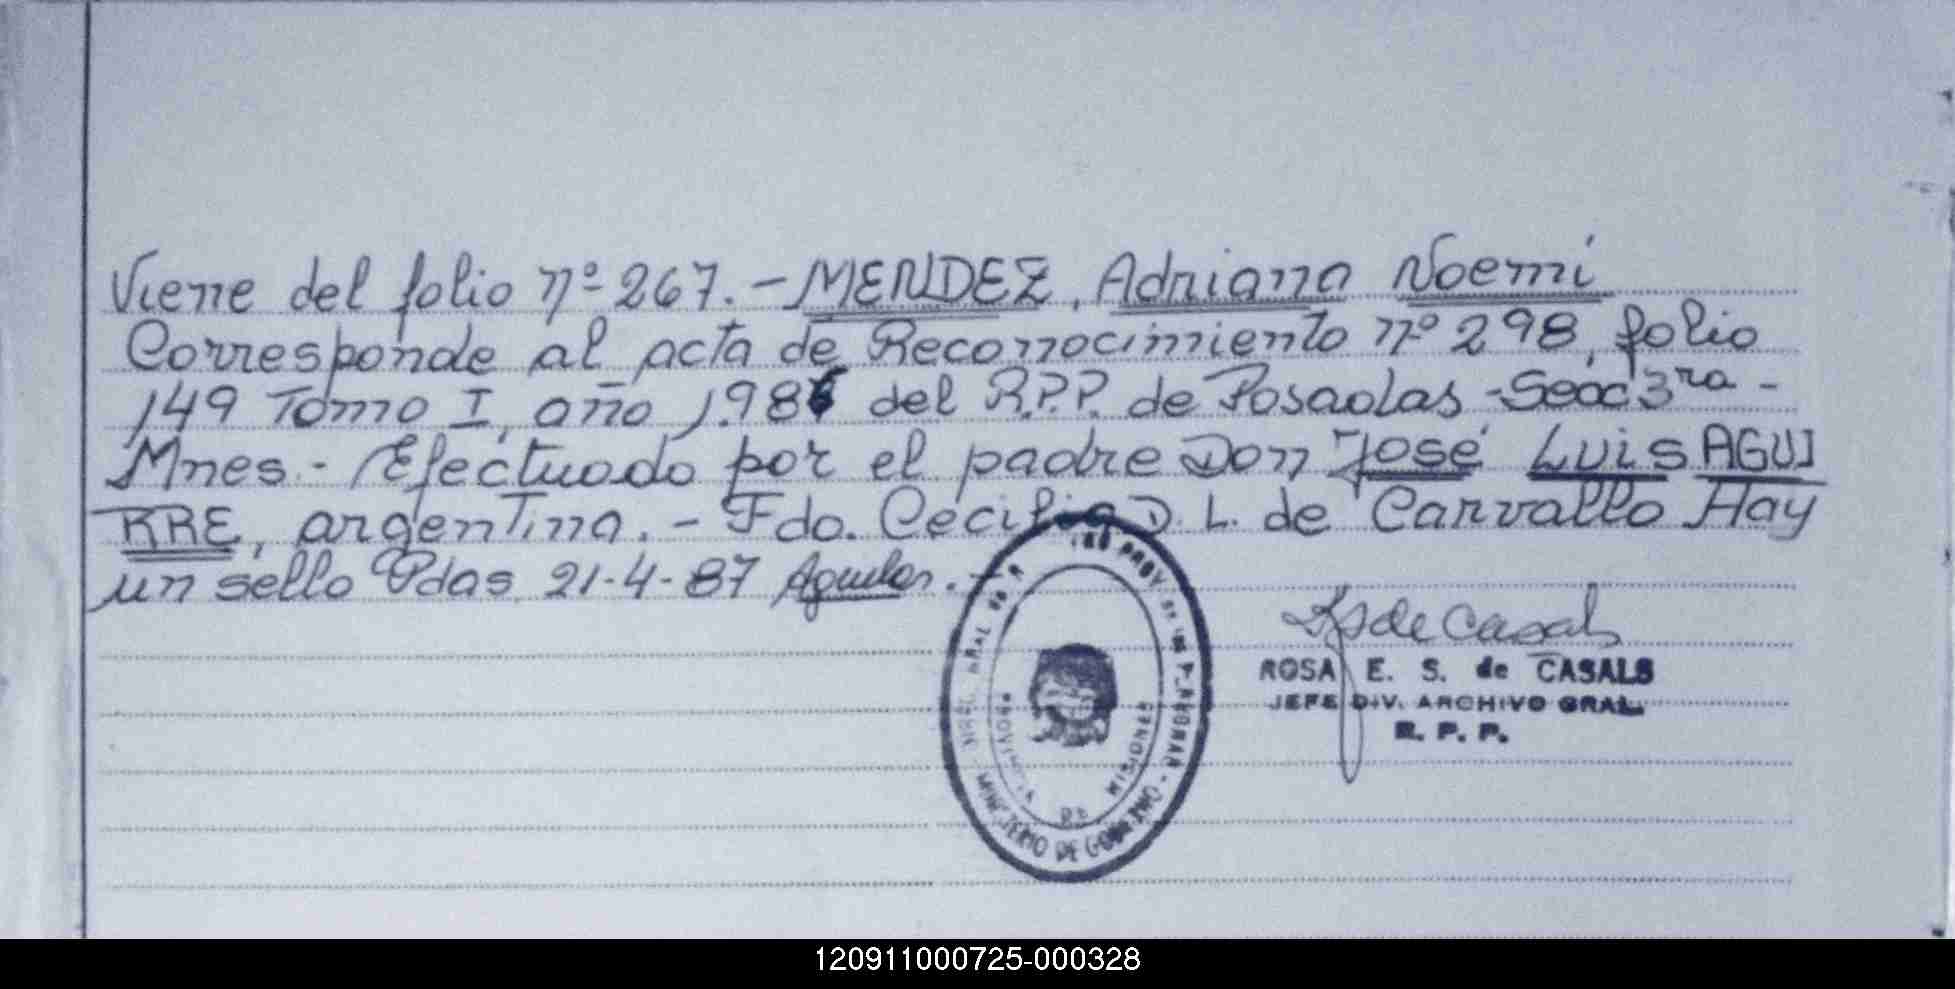 Viene del folio nº 267. - MENDEZ, Adriana Noemí
Corresponde al acta de Reconocimiento nº 298, folio
149 Tomo I, año 1.986 del R.P.P. de Posadas - Secc 3ra -
Mnes. - Efectuado por el padre Don José Luis AGUI
RRE, argentina. - Fdo. Cecilia D. L. de Carvallo Hay
un sello Pdas. 21-4-87 Aguilar. -
S de Casals
ROSA E. S. de CASALS
JEFE DIV. ARCHIVO GRAL.
R. P. P.
MINISTERIO DE GOBIERNO
PROVINCIA DE MISIONES
120911000725-000328